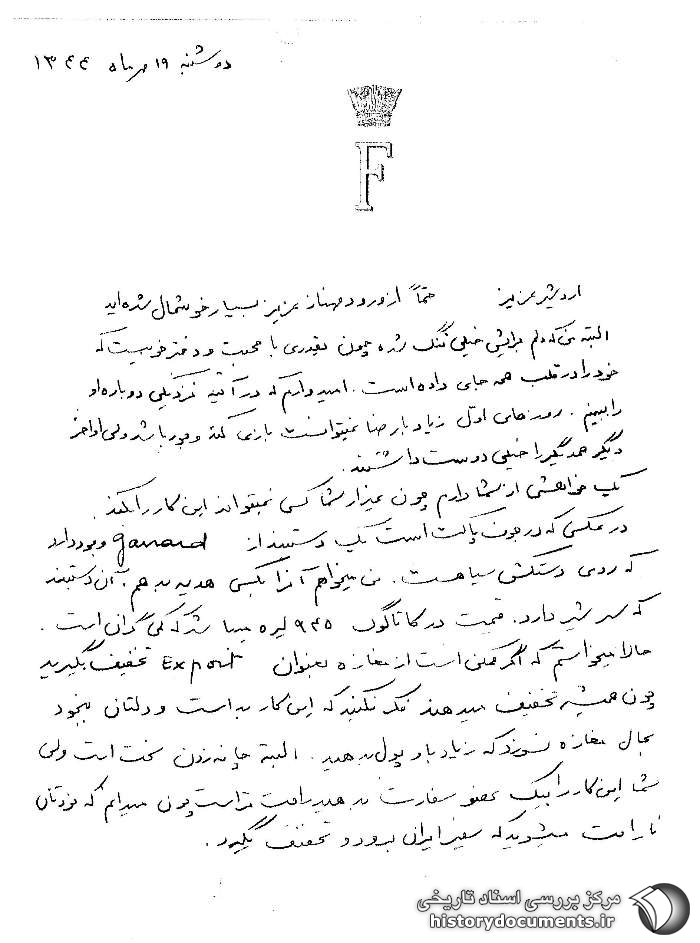 دوشنبه ۱۹ مهرماه ۱۳۴۴
F
اردشیر عزیز حتماً از ورود مهناز عزیز بسیار خوشحال شده‌اید
البته من که دلم برایش خیلی تنگ شده چون بقدری با محبت و دختر خوبیست که
خود را در قلب همه جای داده است. امیدوارم که در آتیه نزدیکی دوباره او
را ببینم. روزهای اول زیاد با رضا نمیتوانست بازی کند و جور باشد ولی اواخر
دیگر همدیگر را خیلی دوست داشتند.
یک خواهشی از شما دارم چون غیر از شما کسی نمیتواند این کار را بکند.
در عکسی که در جوف پاکت است یک دستبند از وجود دارد
که روی دستکش سیاه است. من میخواهم آنرا بکسی هدیه بدهم. آن دستبند
که سر شیر دارد. قیمت در کاتالوگ ۹۴۵ لیره میباشد که کمی گران است.
حالا میخواستم که اگر ممکن است از مغازه بعنوان Export تخفیف بگیرید
چون همیشه تخفیف میدهند فکر نکنید که این کار بد است و دلتان بیخود
بحال مغازه نسوزد که زیاد باو پول بدهید. البته چانه زدن سخت است ولی
شما این کار را بیک عضو سفارت بدهید راحت‌تر است چون میدانم که خودتان
ناراحت میشوید که سفیر ایران برود و تخفیف بگیرد.
مرکز بررسی اسناد تاریخی
historydocuments.ir